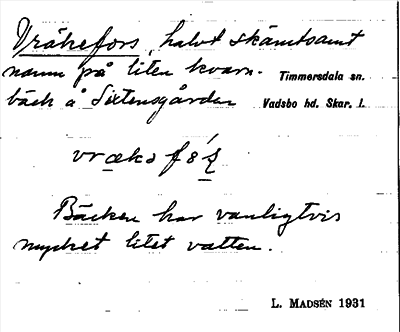 Vråkefors, halvt skämtsamt
namn på liten kvarn- Timmersdala sn.
bäck å Sixtensgården Vadsbo hd. Skar. l.
vrækə
Bäcken har vanligtvis
mycket litet vatten.
L. MADSÉN 1931